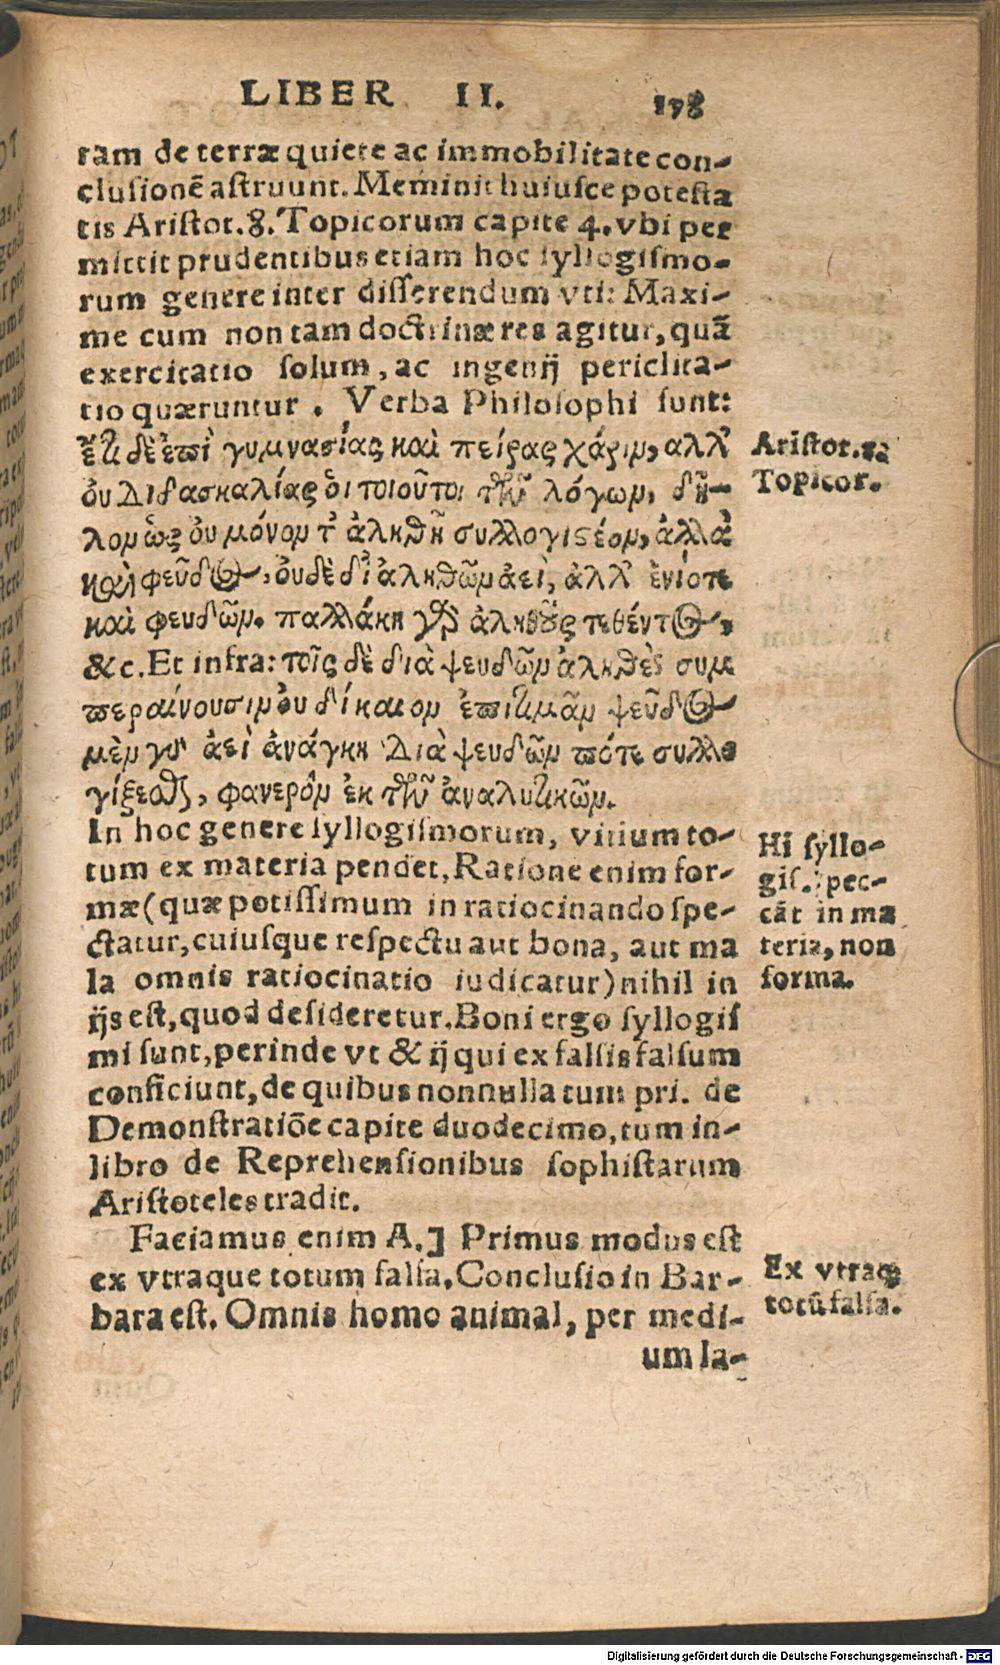 LIBER II. 178
ram de terræ quiete ac immobilitate con-
clusionē astruunt. Meminit huiusce potesta
tis Aristot. 8. Topicorum capite 4. vbi per
mittit prudentibus etiam hoc syllogismo-
rum genere inter disserendum vti: Maxi-
me cum non tam doctrinæ res agitur, quā
exercitatio solum, ac ingenij periclita-
tio quæruntur. Verba Philosophi sunt:
ἔτι δὲ ἐπὶ γυμνασίας καὶ πείρας χάριν, ἀλλ'
οὐ διδασκαλίας οἱ τοιοῦτοι τῶν λόγων, δῆ-
λον ὡς οὐ μόνον τ' ἀληθῆ συλλογιστέον, ἀλλὰ
καὶ ψεῦδος, οὐδὲ δι' ἀληθῶν ἀεὶ, ἀλλ' ἐνίοτε
καὶ ψευδῶν. πολλάκι γὰρ ἀληθοῦς τεθέντος,
&c. Et infra: τοῖς δὲ διὰ ψευδῶν ἀληθὲς συμ
περαίνουσιν οὐ δίκαιον ἐπιτιμᾶν ψεῦδος
μὲν γὰρ ἀεὶ ἀνάγκη διὰ ψευδῶν ποτε συλλο
γίζεσθαι, φανερὸν ἐκ τῶν ἀναλυτικῶν.
In hoc genere syllogismorum, vitium to-
tum ex materia pendet, Ratione enim for-
mæ (quæ potissimum in ratiocinando spe-
ctatur, cuiusque respectu aut bona, aut ma
la omnis ratiocinatio iudicatur) nihil in
ijs est, quod desideretur. Boni ergo syllogis
mi sunt, perinde vt & ij qui ex falsis falsum
conficiunt, de quibus nonnulla tum pri. de
Demonstratiōe capite duodecimo, tum in-
libro de Reprehensionibus sophistarum
Aristoteles tradit.
Faciamus enim A.] Primus modus est
ex vtraque totum falsa. Conclusio in Bar-
bara est. Omnis homo animal, per medi-
um la-
Aristot. 8.
Topicor.
Hi syllo-
gis. pec-
cāt in ma
teria, non
forma.
Ex vtraq;
totū falsa.
Digitalisierung gefördert durch die Deutsche Forschungsgemeinschaft - DFG